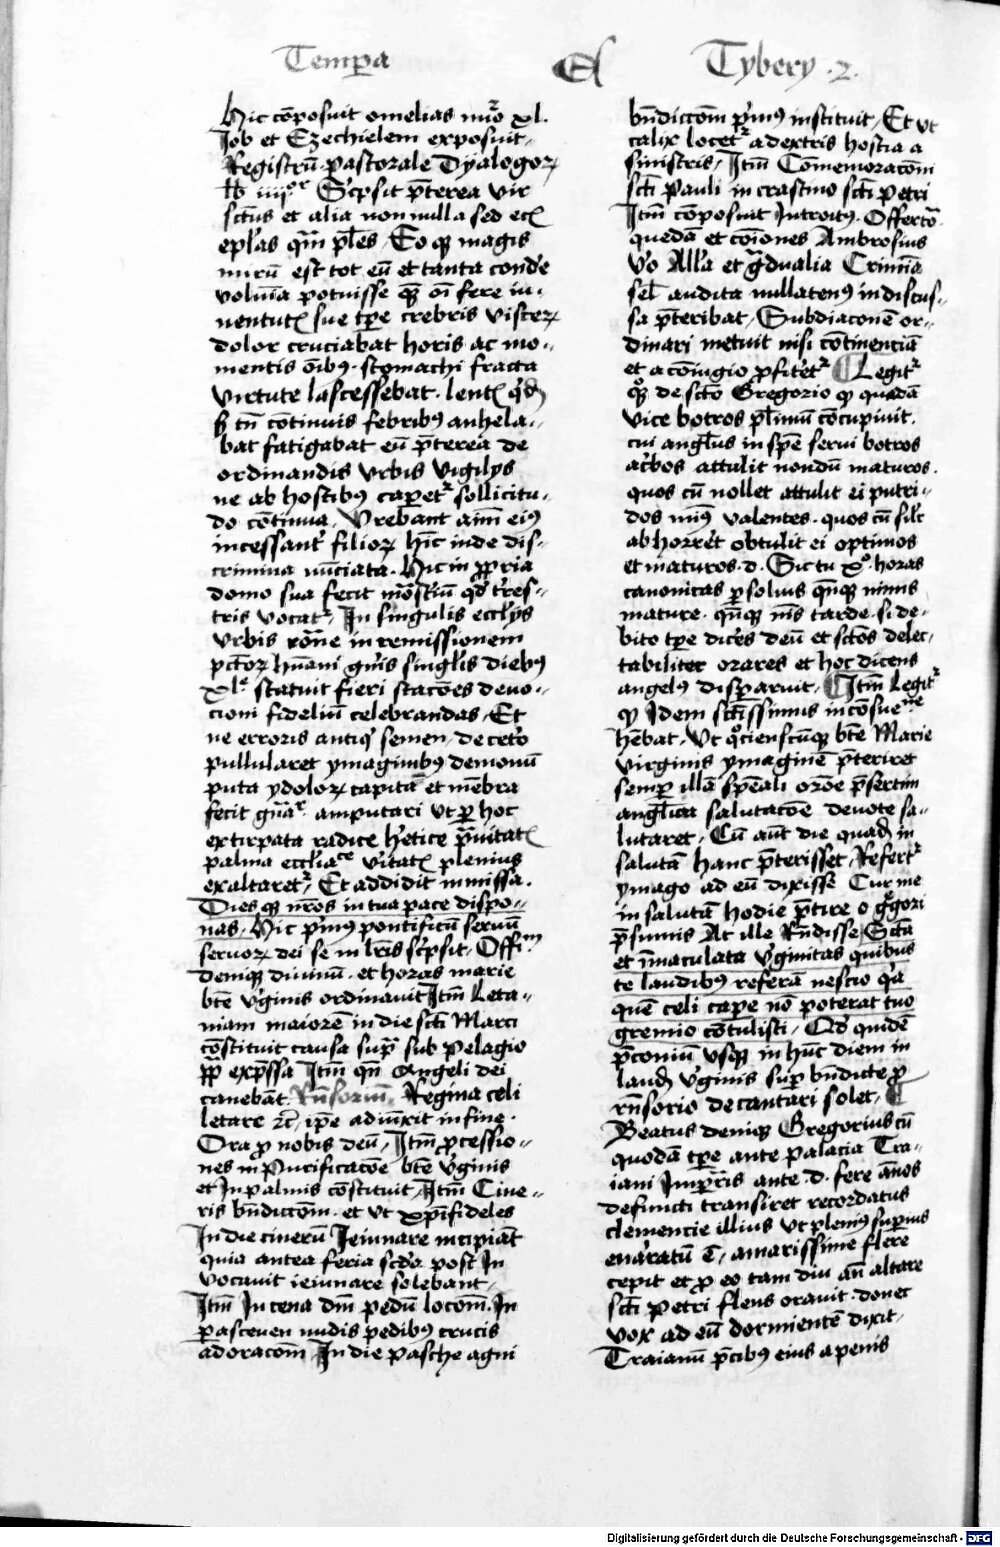 Tempa El Tybery .2.
Hic cōposuit omelias nūo xl.
Job et Ezechielem exposuit
Registrū pastorale Dyalogoꝝ
lib iiiior Scpsit p̄terea vir
sctūs et alia non nulla sed ecī
eplas qm̄ ples, Eo qꝫ magis
mirū est tot eū et tanta conde
volmīa potuisse qꝫ oī fere iu-
uentutꝭ sue tpe crebris viscerꝝ
dolor cruciabat horis ac mo-
mentis oībꝰ. stomachi fracta
virtute lascessebat. lentꝭ qd
ꝫ tn̄ cōtinuis febribꝰ anhela-
bat fatigabat eū p̄terea de
ordinandis vrbis vigilys
ne ab hostibꝰ capet sollicitu-
do cōtinua. Vrebant aīm eiꝰ
incessant filioꝝ hīc inde dis-
crimina nūciata. Hic in ꝓpria
domo sua fecit mōstiū qd tres-
tris vocat, In singulis ecclys
vrbis rōne in remissionem
pctoꝝ hūani gnis singlis diebꝰ
xle statuit fieri stacōes deuo-
cioni fideliū celebrandas, Et
ne erroris antiq semen de ceto
pullularet ymaginibꝰ demonū
puta ydoloꝝ capita et mēbra
fecit gnār amputari vt p hoc
extirpata radice hetice pᵃuitatꝭ
palma eccliace vitatꝭ plenius
exaltaret, Et addidit in missa.
Dies qꝫ nros in tua pace dispo-
nas. Hic pmus pontificū seruū
seruoꝝ dei se in lris scpsit, Offim
deniqꝫ diuinū. et horas marie
bte vginis ordinauit Itm Leta-
niam maiorē in die scti Marci
cōstituit causa sup sub pelagio
pp expssa Itm qn Angeli dei
canebāt Rn̄sorium. Regina celi
letare ꝛc, ipe adiūxit in fine.
Ora ꝓ nobis deū, Itm ꝓcessio-
nes in Purificacōe bte vginis
et In palmis cōstituit, Itm Cine-
ris bn̄dictom. et vt xp̄ifideles
In die cinerū Jeiunare incipiāt
quia antea feria scda post In
vocauit ieiunare solebant,
Itm In cena dm̄ pedū locom. In
pasceuen nudis pedibꝰ crucis
adoracom, In die pasche agni
bn̄diccom pmꝰ instituit, Et vt
calix locet adextris hostia a
sinistris, Itm Cōmemoracom
scti pauli in crastino scti petri
Itm cōposuit Introitꝰ. Offerto.
quedā et cōiones Ambrosius
vo Alla et gdualia Criminā
sel audita nullatenꝰ indiscus-
sa p̄teribat, Subdiaconē or-
dinari metuit nisi cōtinenciā
et a cōiugio ꝓfitet Legit
qꝫ de scto Gregorio qꝫ quadā
vice botros plimū cōcupiuit.
cui anglus in spē serui botros
acbos attulit nondū maturos.
quos cū nollet attulit ei putri-
dos minꝰ valentes. quos cū silr
abhorret obtulit ei optimos
et maturos. d. Sic tu xo horas
canonicas psoluis qn̄qꝫ nimis
mature. qn̄qꝫ nīs tarde. si de-
bito tpe dices deū et sctos delec-
tabiliter orares et hoc dicens
angelꝰ disparuit, Itm Legit
qꝫ Idem sctissimus in cōsuene
hēbat, Vt qociensciqꝫ bte Marie
virginis ymaginē p̄teriret
semp illā spēali orōe p̄sertim
anglica salutacōe deuote sa-
lutaret, Cū aūt die quadā in
salutā hanc p̄terisset, Refert
ymago ad eū dixisse Cur me
in salutā hodie p̄tire o gᵉgori
p̄sumis At ille Rn̄disse, Scta
et īmaculata vginitas quibus
te laudibꝰ referā nescio qa
quē celi cape nō poterat tuo
gremio cōtulisti, Qd quidē
p̄coniū vsqꝫ in hūc diem in
laudē vginis sup bn̄dicte ꝓ
rn̄sorio decantari solet,
Beatus deniqꝫ Gregorius cū
quodā tpe ante palacia Tra-
iani Impris ante .d. fere ānos
defuncti transiret recordatus
clemencie illius vt pleniꝰ supius
enaratū ē, amarissime flere
cepit et ꝓ eo tam diu an̄ altare
scti petri flens orauit donec
vox ad eū dormientē dixit.
Traianū p̄cibꝰ eius a penis
Digitalisierung gefördert durch die Deutsche Forschungsgemeinschaft - DFG